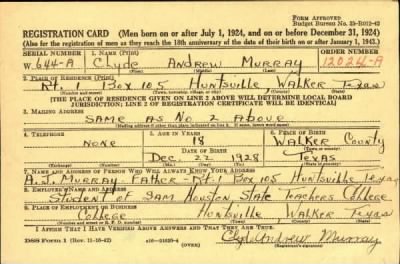 FORM APPROVED
Budget Bureau No. 33-R012-43
REGISTRATION CARD (Men born on or after July 1, 1924, and on or before December 31, 1924)
(Also for the registration of men as they reach the 18th anniversary of the date of their birth on or after January 1, 1943.)
SERIAL NUMBER 1. NAME (Print) ORDER NUMBER
W 644-A Clyde Andrew Murray 12024-A
(First) (Middle) (Last)
2. PLACE OF RESIDENCE (Print)
Rt. 1 Box 105 Huntsville Walker Texas
(Number and street) (Town, township, village, or city) (County) (State)
[THE PLACE OF RESIDENCE GIVEN ON LINE 2 ABOVE WILL DETERMINE LOCAL BOARD
JURISDICTION; LINE 2 OF REGISTRATION CERTIFICATE WILL BE IDENTICAL]
3. MAILING ADDRESS
SAME AS NO 2 ABOVE
(Mailing address if other than place indicated on line 2. If same, insert word same)
4. TELEPHONE 5. AGE IN YEARS 6. PLACE OF BIRTH
NONE 18 Walker County
DATE OF BIRTH (Town or county)
Dec. 22 1928 Texas
(Mo.) (Day) (Yr.) (State or country)
7. NAME AND ADDRESS OF PERSON WHO WILL ALWAYS KNOW YOUR ADDRESS
Murray - Father - Rt. 1 Box 105 Huntsville Texas
8. EMPLOYER'S NAME AND ADDRESS
Student of Sam Houston State Teachers College
9. PLACE OF EMPLOYMENT OR BUSINESS
College Huntsville, Walker Texas
(Number and street or R. F. D. number) (Town) (County) (State)
I AFFIRM THAT I HAVE VERIFIED ABOVE ANSWERS AND THAT THEY ARE TRUE.
DSS Form 1 (Rev. 11-16-42) (OVER) Clyde Andrew Murray
(Registrant's signature)